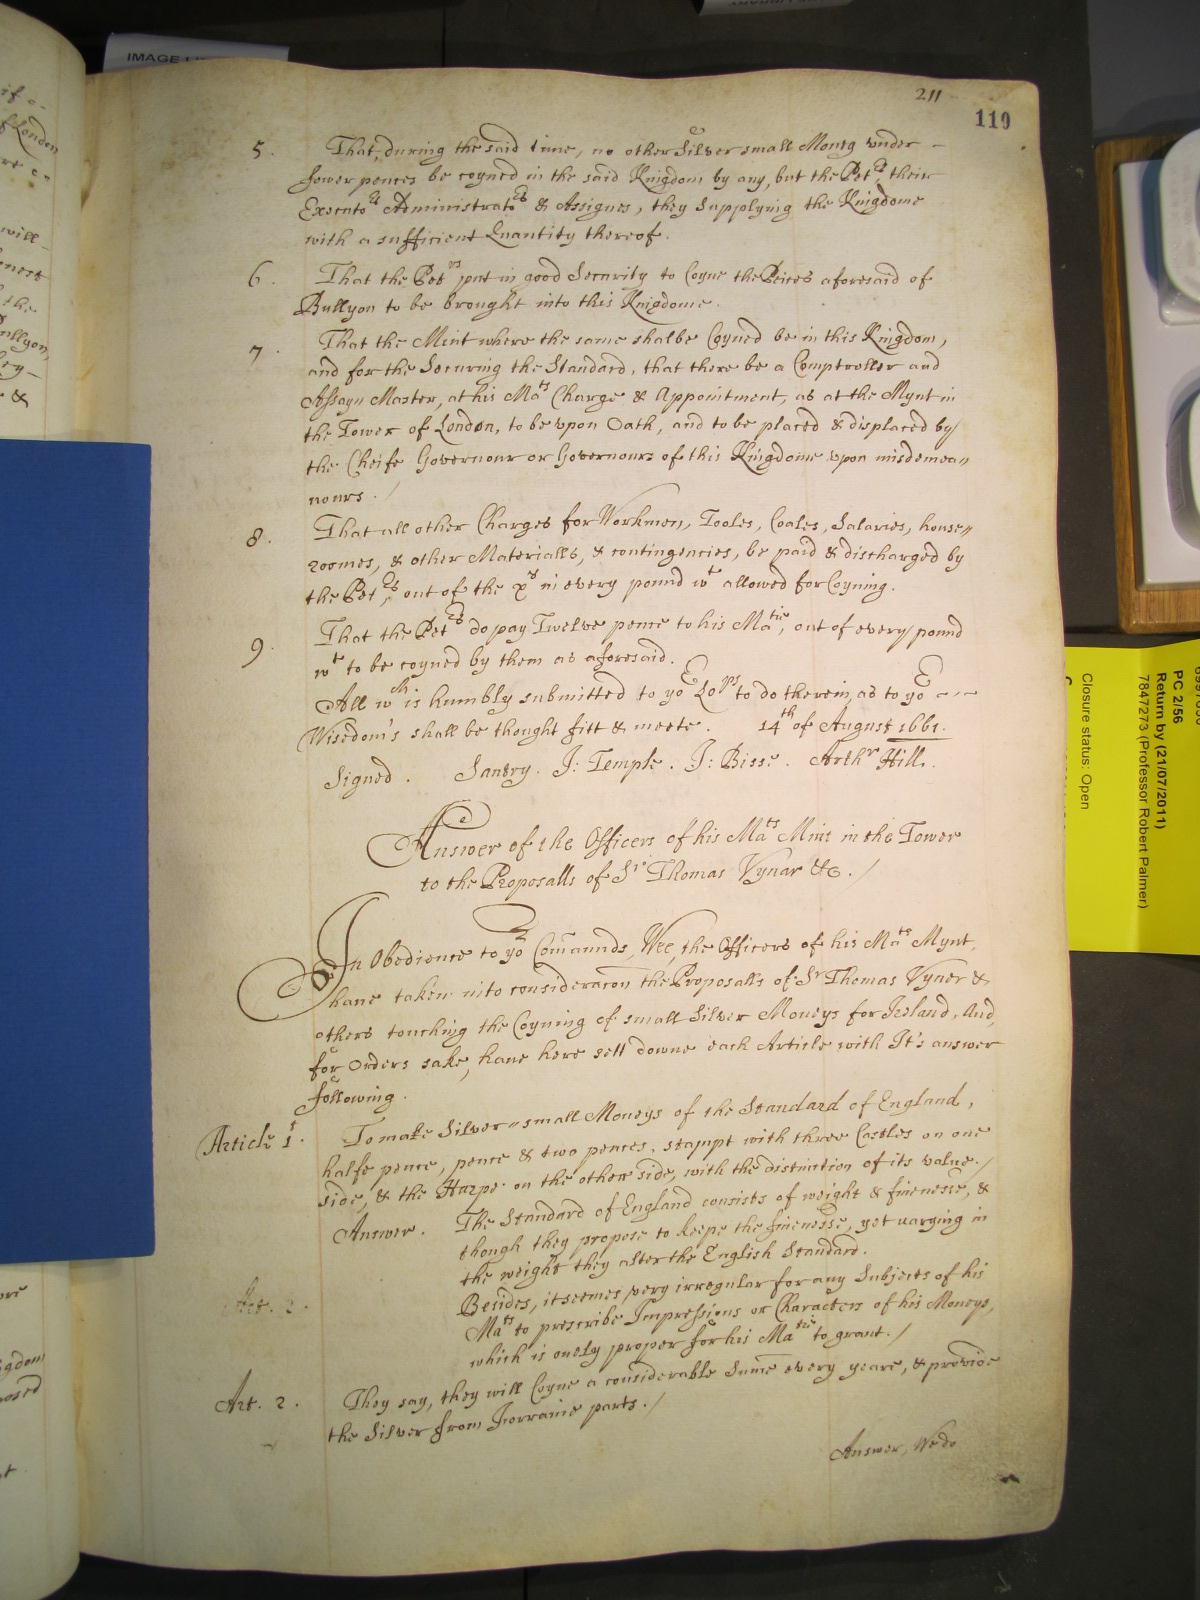 211
119
5. That, during the said time, no other Silver small Money under
fower pences be coyned in the said Kingdom by any, but the Pet.rs their
Executo.rs Administrato.rs & Assignes, they Supplying the Kingdome
with a sufficient Quantity thereof.
6. That the Pet.rs put in good Security to Coyne the Peices aforesaid of
Bullyon to be brought into this Kingdome.
7. That the Mint where the same shalbe Coyned be in this Kingdom,
and for the Securing the Standard, that there be a Comptroller and
Assay Master, at his Ma.ts Charge & Appointment, as at the Mynt in
the Tower of London, to be vpon Oath, and to be placed & displaced by
the Cheife Governour or Governours of this Kingdome vpon misdemea"
nours. /
8. That all other Charges for Workmen, Tooles, Coales, Salaries, house"
roomes, & other Materialls, & contingencies, be paid & discharged by
the Pet.rs, out of the x.d in every pound w.t allowed for Coyning.
9. That the Pet.rs do pay Twelve pence to his Ma.tie, out of every pound
w.t to be coyned by them as aforesaid.
All w.ch is humbly submitted to yo.r Lo.ps to do therein, as to yo.r
Wisedom's shall be thought fitt & meete. 14.th of August 1661.
Signed. Santry. J: Temple. J: Bisse. Arth.r Hill.
Answer of the Officers of his Ma.ts Mint in the Tower
to the Proposalls of S.r Thomas Vynar &c. /
In Obedience to yo.r Com̄aunds, Wee, the Officers of his Ma.ts Mynt,
haue taken into consideracon the Proposalls of S.r Thomas Vyner &
others touching the Coyning of small Silver Moneys for Ireland, And,
for Orders sake, haue here sett downe each Article with It's answer
following.
Article 1.t To make Silver-small Moneys of the Standard of England,
halfe pence, pence & two pences, stampt with three Castles on one
side, & the Harpe on the other side, with the distinction of its value. /
Answer. The Standard of England consists of weight & finenesse, &
though they propose to keepe the finenesse, yet varying in
the weight they alter the English Standard.
Besides, it seemes very irregular for any Subjects of his
Ma.ts to prescribe Impressions or Characters of his Moneys,
which is onely proper for his Ma.tie to grant. /
Art. 2. They say, they will Coyne a considerable Sum̄e every yeare, & provide
the Silver from Forraine parts. /
Answer, We do
IMAGE
PC 2/56
Return by (21/07/2011)
7847273 (Professor Robert Palmer)
Closure status: Open